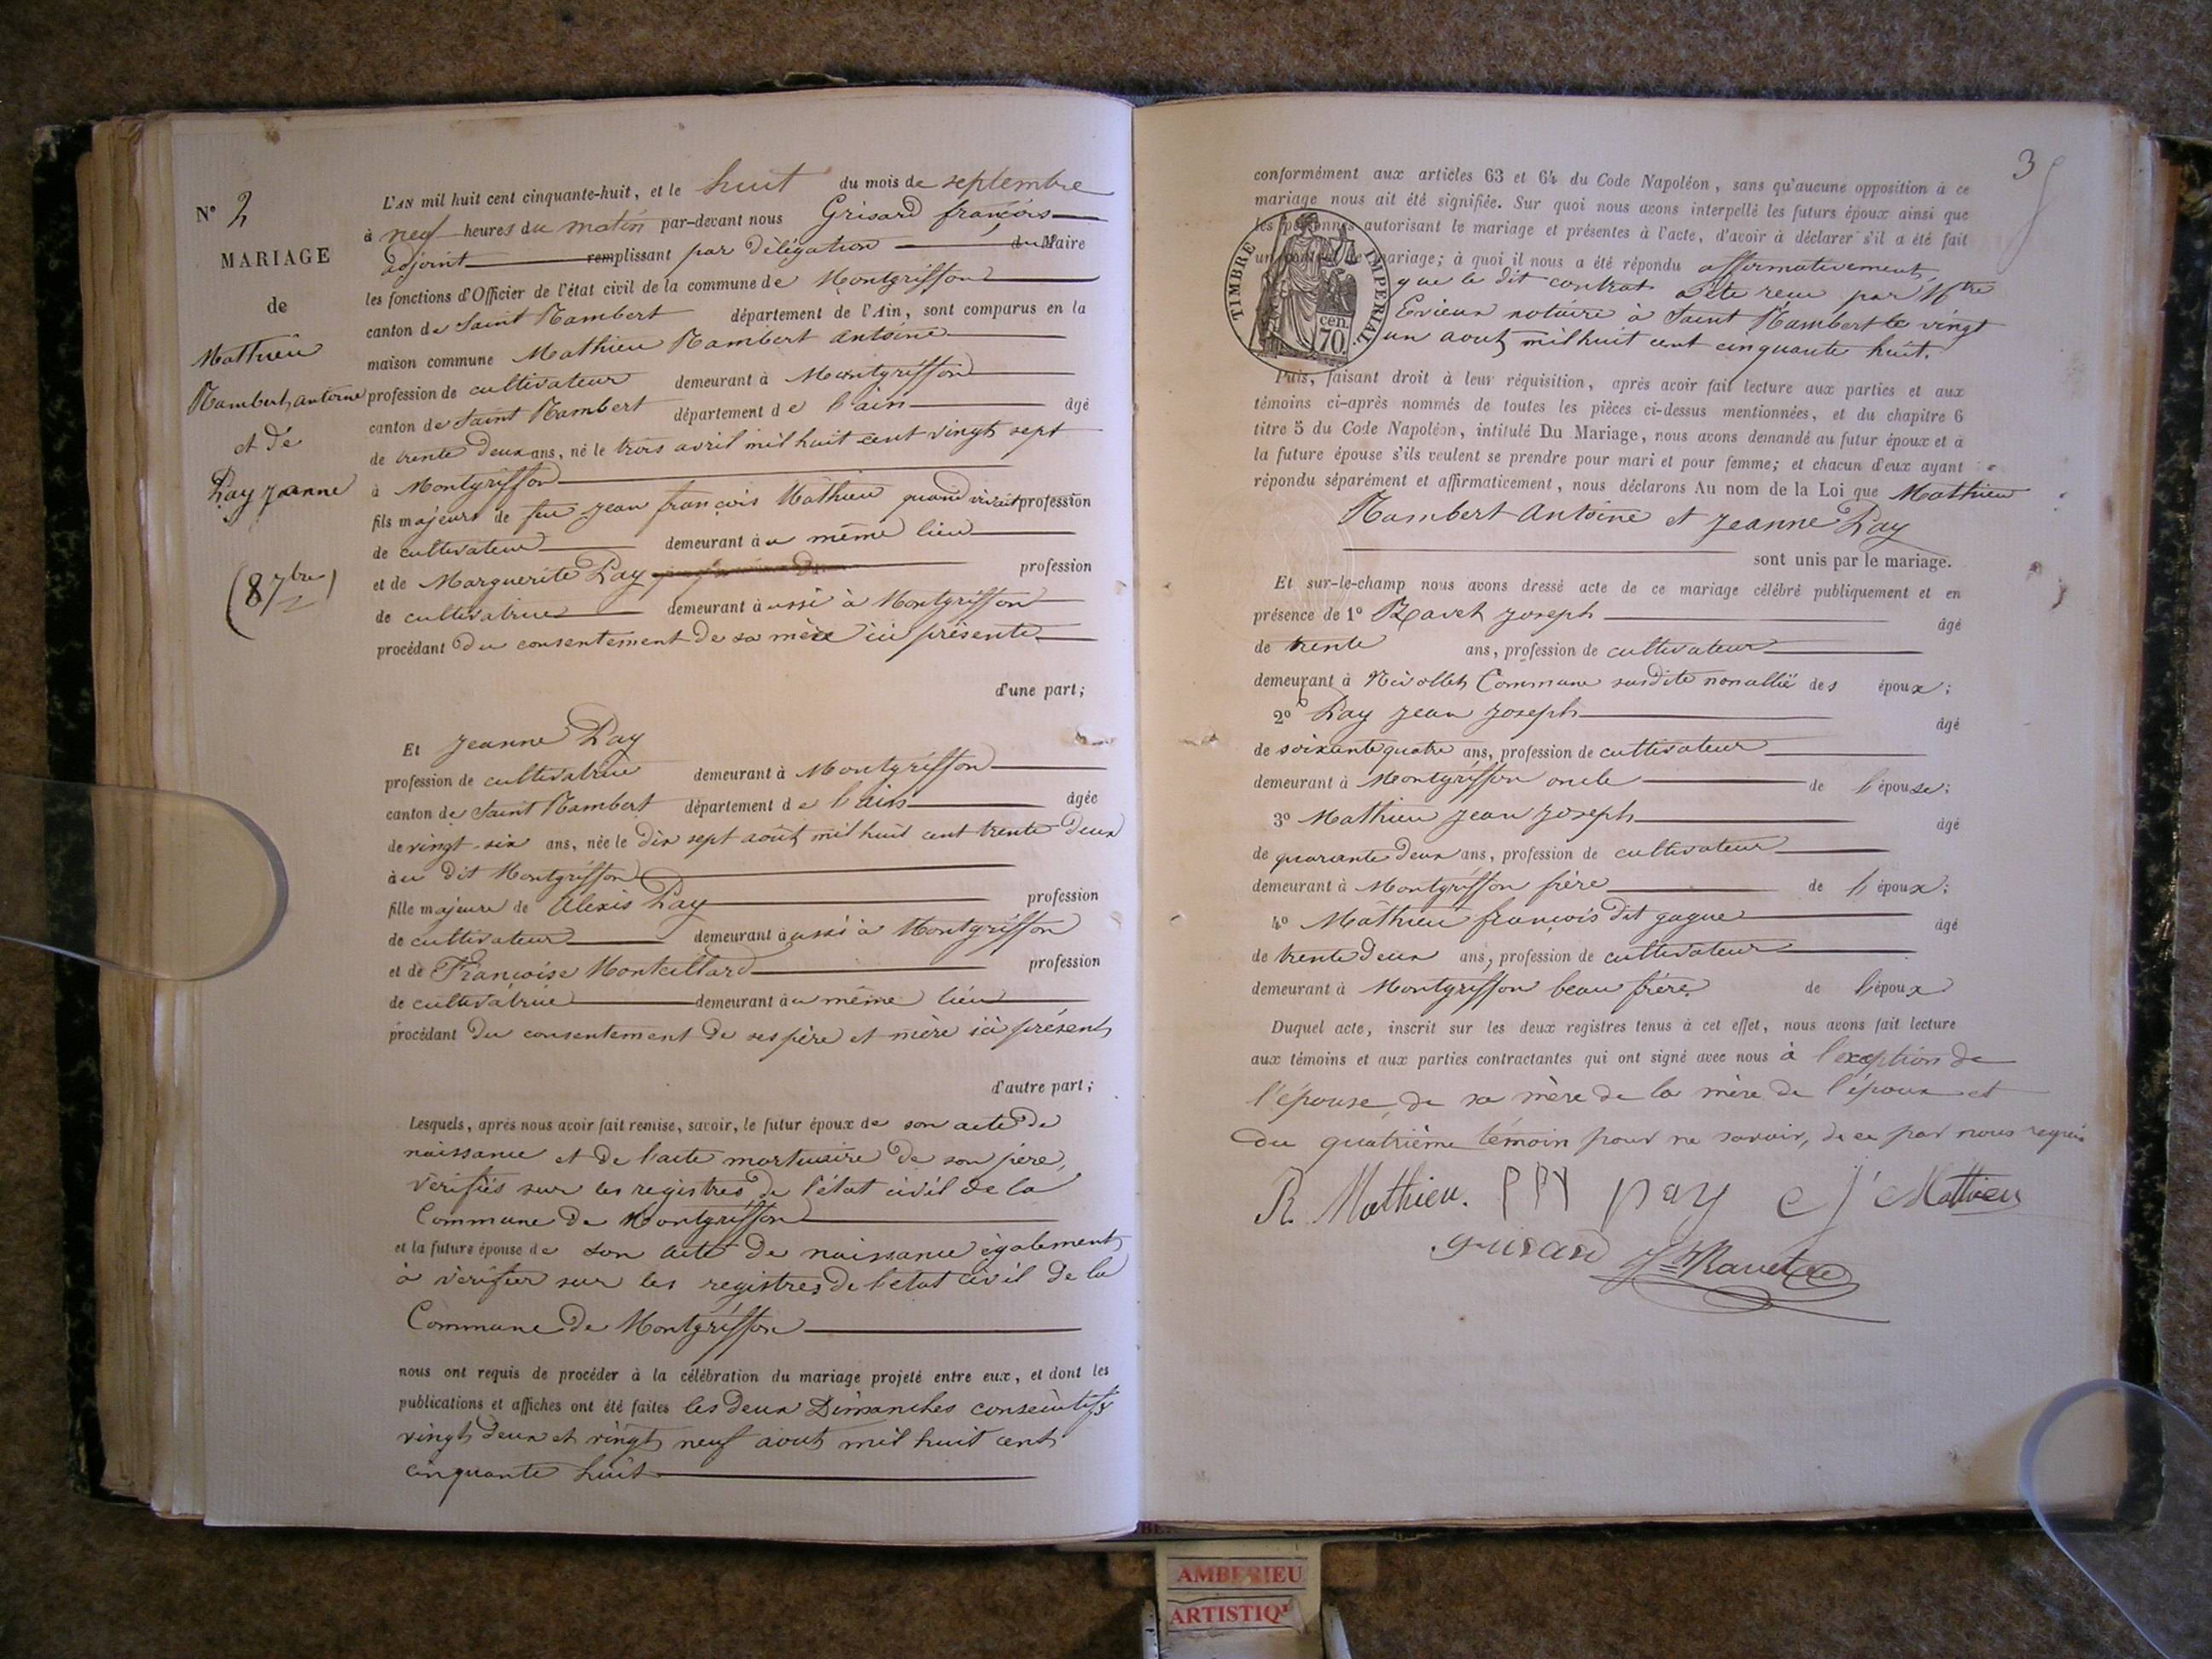 N° 2
MARIAGE
de
Mathieu
Rambert, antoine
et de
Pay Jeanne
(8 7bre)
L'AN mil huit cent cinquante-huit, et le huit du mois de septembre
à neuf heures du matin par-devant nous Grisard françois
adjoint remplissant par délégation du Maire
les fonctions d'Officier de l'état civil de la commune de Montgriffon
canton de Saint Rambert département de l'Ain, sont comparus en la
maison commune Mathieu Rambert antoine
profession de cultivateur demeurant à Montgriffon
canton de Saint Rambert département de l'ain âgé
de trente deux ans, né le trois avril mil huit cent vingt sept
à Montgriffon
fils majeur de feu jean françois Mathieu quand vivait profession
de cultivateur demeurant à u même lieu
et de Marguerite Pay profession
de cultivatrice demeurant à ussi à Montgriffon
procédant du consentement de sa mère ici présente
d'une part;
Et Jeanne Pay
profession de cultivatrice demeurant à Montgriffon
canton de Saint Rambert département de l'ain âgée
de vingt-six ans, née le dix sept août mil huit cent trente deux
àu dit Montgriffon
fille majeure de Alexis Pay profession
de cultivateur demeurant à ussi à Montgriffon
et de Françoise Monteillard profession
de cultivatrice demeurant à u même lieu
procédant du consentement de ses père et mère ici présents
d'autre part;
Lesquels, après nous avoir fait remise, savoir, le futur époux de son acte de
naissance et de l'acte mortuaire de son père,
vérifiés sur les registres de l'état civil de la
Commune de Montgriffon
et la future épouse de son acte de naissance également
à vérifier sur les registres de l'etat civil de la
Commune de Montgriffon
nous ont requis de procéder à la célébration du mariage projeté entre eux, et dont les
publications et affiches ont été faites les deux Dimanches consécutifs
vingt deux et vingt neuf aout mil huit cent
cinquante huit
3
conformément aux articles 63 et 64 du Code Napoléon, sans qu'aucune opposition à ce
mariage nous ait été signifiée. Sur quoi nous avons interpellé les futurs époux ainsi que
les personnes autorisant le mariage et présentes à l'acte, d'avoir à déclarer s'il a été fait
un contrat de mariage; à quoi il nous a été répondu affirmativement
que le dit contrat a été reçu par Mtre
Evieux notaire à Saint Rambert le vingt
un aout mil huit cent cinquante huit.
TIMBRE IMPERIAL.
cen. 70.
Puis, faisant droit à leur réquisition, après avoir fait lecture aux parties et aux
témoins ci-après nommés de toutes les pièces ci-dessus mentionnées, et du chapitre 6
titre 5 du Code Napoléon, intitulé Du Mariage, nous avons demandé au futur époux et à
la future épouse s'ils veulent se prendre pour mari et pour femme; et chacun d'eux ayant
répondu séparément et affirmativement, nous déclarons Au nom de la Loi que Mathieu
Rambert Antoine et Jeanne Pay
sont unis par le mariage.
Et sur-le-champ nous avons dressé acte de ce mariage célébré publiquement et en
présence de 1° Ravet joseph âgé
de trente ans, profession de cultivateur
demeurant à Nivollet Commune susdite non allié des époux;
2° Pay jean joseph âgé
de soixante quatre ans, profession de cultivateur
demeurant à Montgriffon oncle de l'épouse;
3° Mathieu jean joseph âgé
de quarante deux ans, profession de cultivateur
demeurant à Montgriffon frère de l'époux;
4° Mathieu françois dit gague âgé
de trente deux ans, profession de cultivateur
demeurant à Montgriffon beau frère de l'époux
Duquel acte, inscrit sur les deux registres tenus à cet effet, nous avons fait lecture
aux témoins et aux parties contractantes qui ont signé avec nous à l'exception de
l'épouse, de sa mère de la mère de l'époux et
du quatrième témoin pour ne savoir, de ce par nous requis
R. Mathieu. PAY pay J Mathieu
grisard Jh Ravet
AMBERIEU
ARTISTIQ